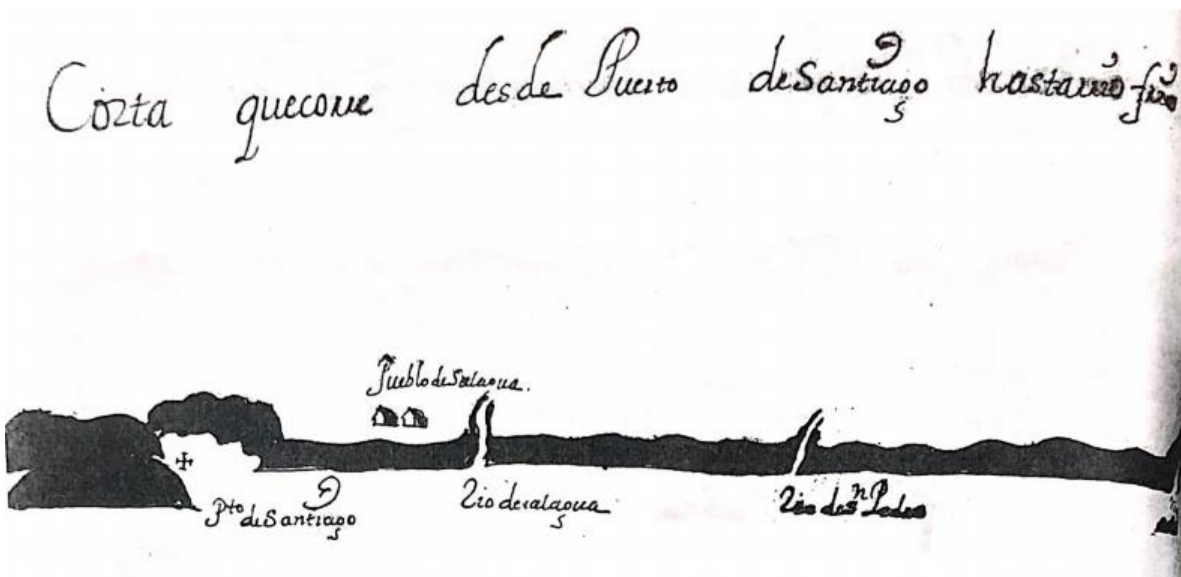 Costa quecorre desde Puerto deSantiago hasta
Pueblo de Salagua.
Pto de Santiago
Rio desalagua
Rio de Sn Pedro